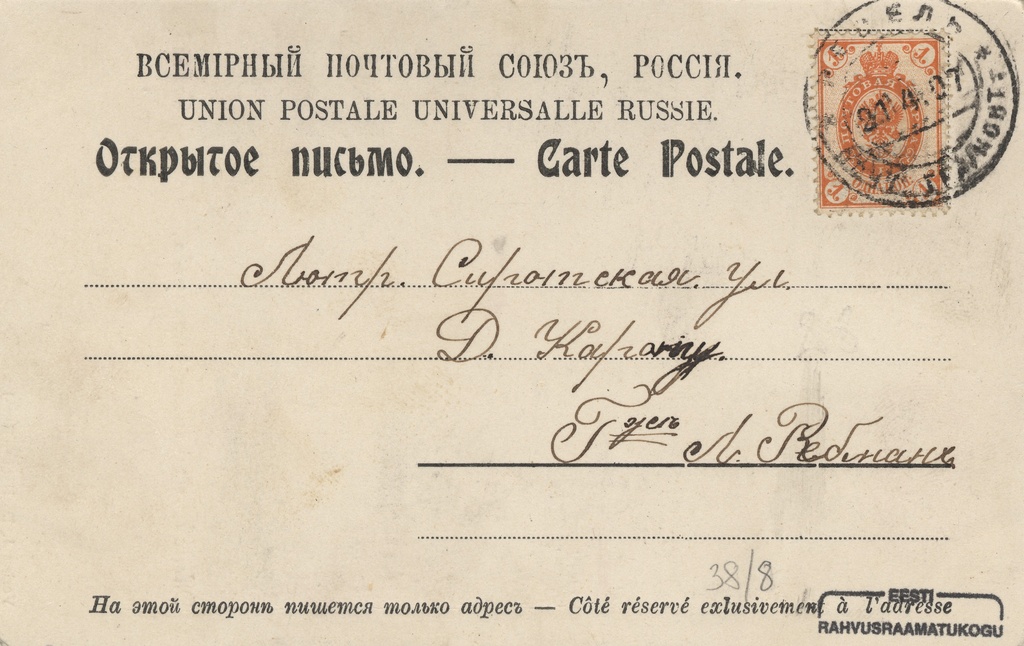 ВСЕМІРНЫЙ ПОЧТОВЫЙ СОЮЗЪ, РОССІЯ.
UNION POSTALE UNIVERSALLE RUSSIE.
Открытое письмо. — Carte Postale.
ПОЧТОВАЯ
1 1
1 1
Лютр. Сиротская. ул.
Д.
Г жѣ Л. Ребманъ
38/8
На этой сторонѣ пишется только адресъ — Côté réservé exlusivement à l'adresse
EESTI
RAHVUSRAAMATUKOGU